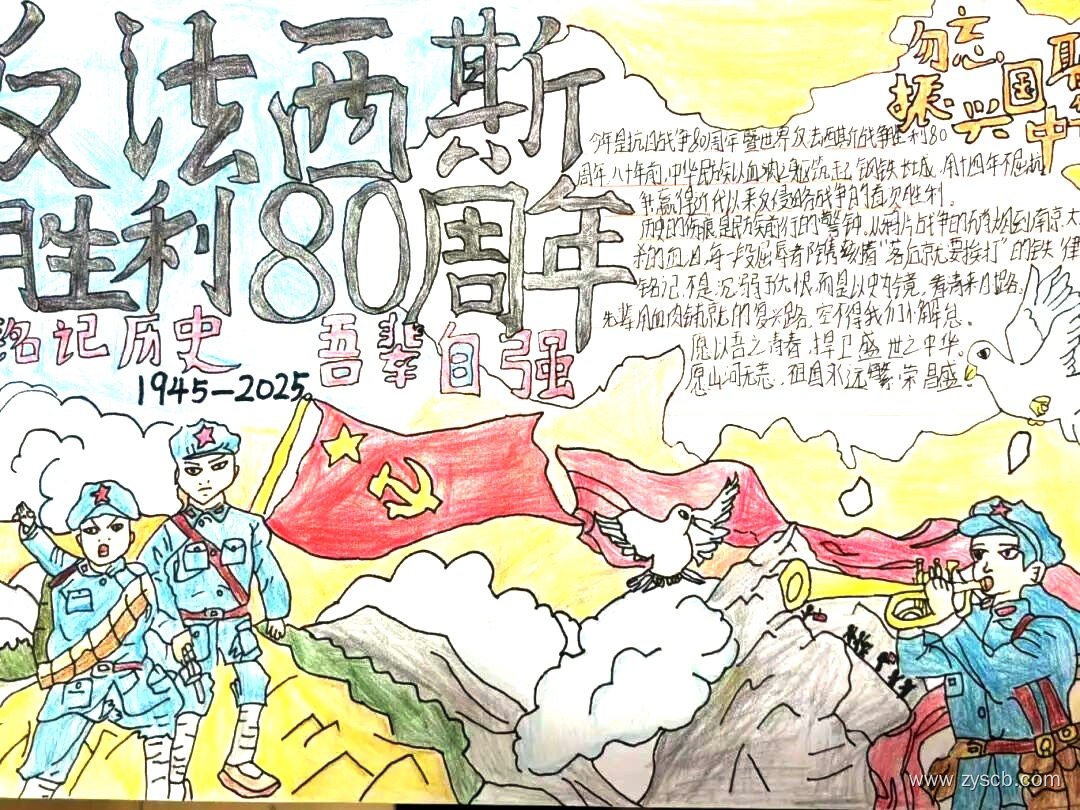 反法西斯
胜利80周年
铭记历史 吾辈自强
1945-2025
勿忘国
振兴中
今年是抗日战争80周年暨世界反法西斯战争胜利80
周年,八十年前,中华民族以血肉之躯筑起钢铁长城,用十四年不屈抗
争赢得近代以来反侵略战争的首次胜利。
历史的伤痕是民族前行的警钟。从鸦片战争的硝烟到南京大
的血泪,每一段屈辱都镌刻着“落后就要挨打”的铁律
铭记,不是沉溺于仇恨,而是以史为鉴,看清来时路。
先辈用血肉铺就的复兴路,容不得我们懈怠。
愿以吾之青春,捍卫盛世之中华。
愿山河无恙,祖国永远繁荣昌盛!
www.zyscb.com